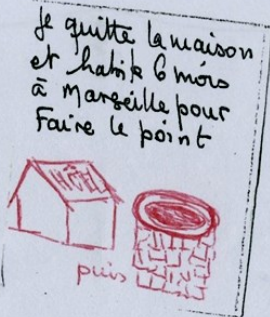 Je quitte la maison
et habite 6 mois
à Marseille pour
Faire le point
HÔTEL
puis